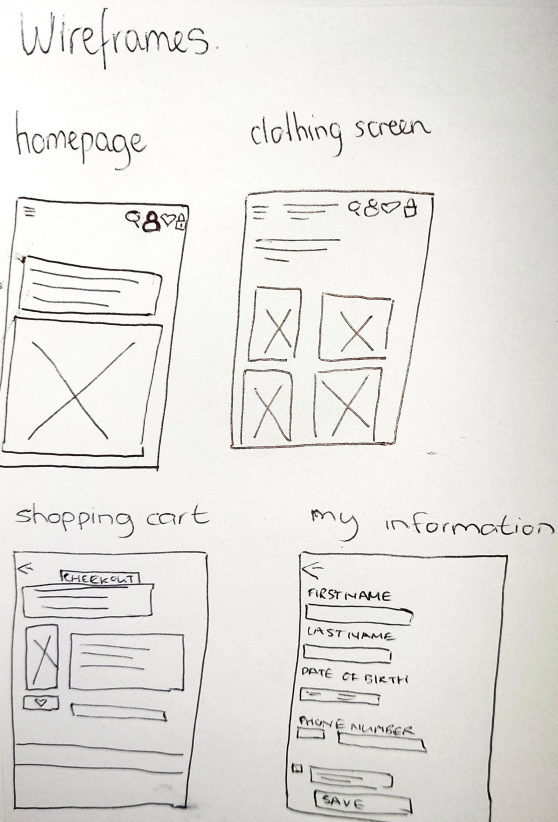 Wireframes.
homepage
clothing screen
shopping cart
CHECKOUT
my information
FIRST NAME
LAST NAME
DATE OF BIRTH
PHONE NUMBER
SAVE